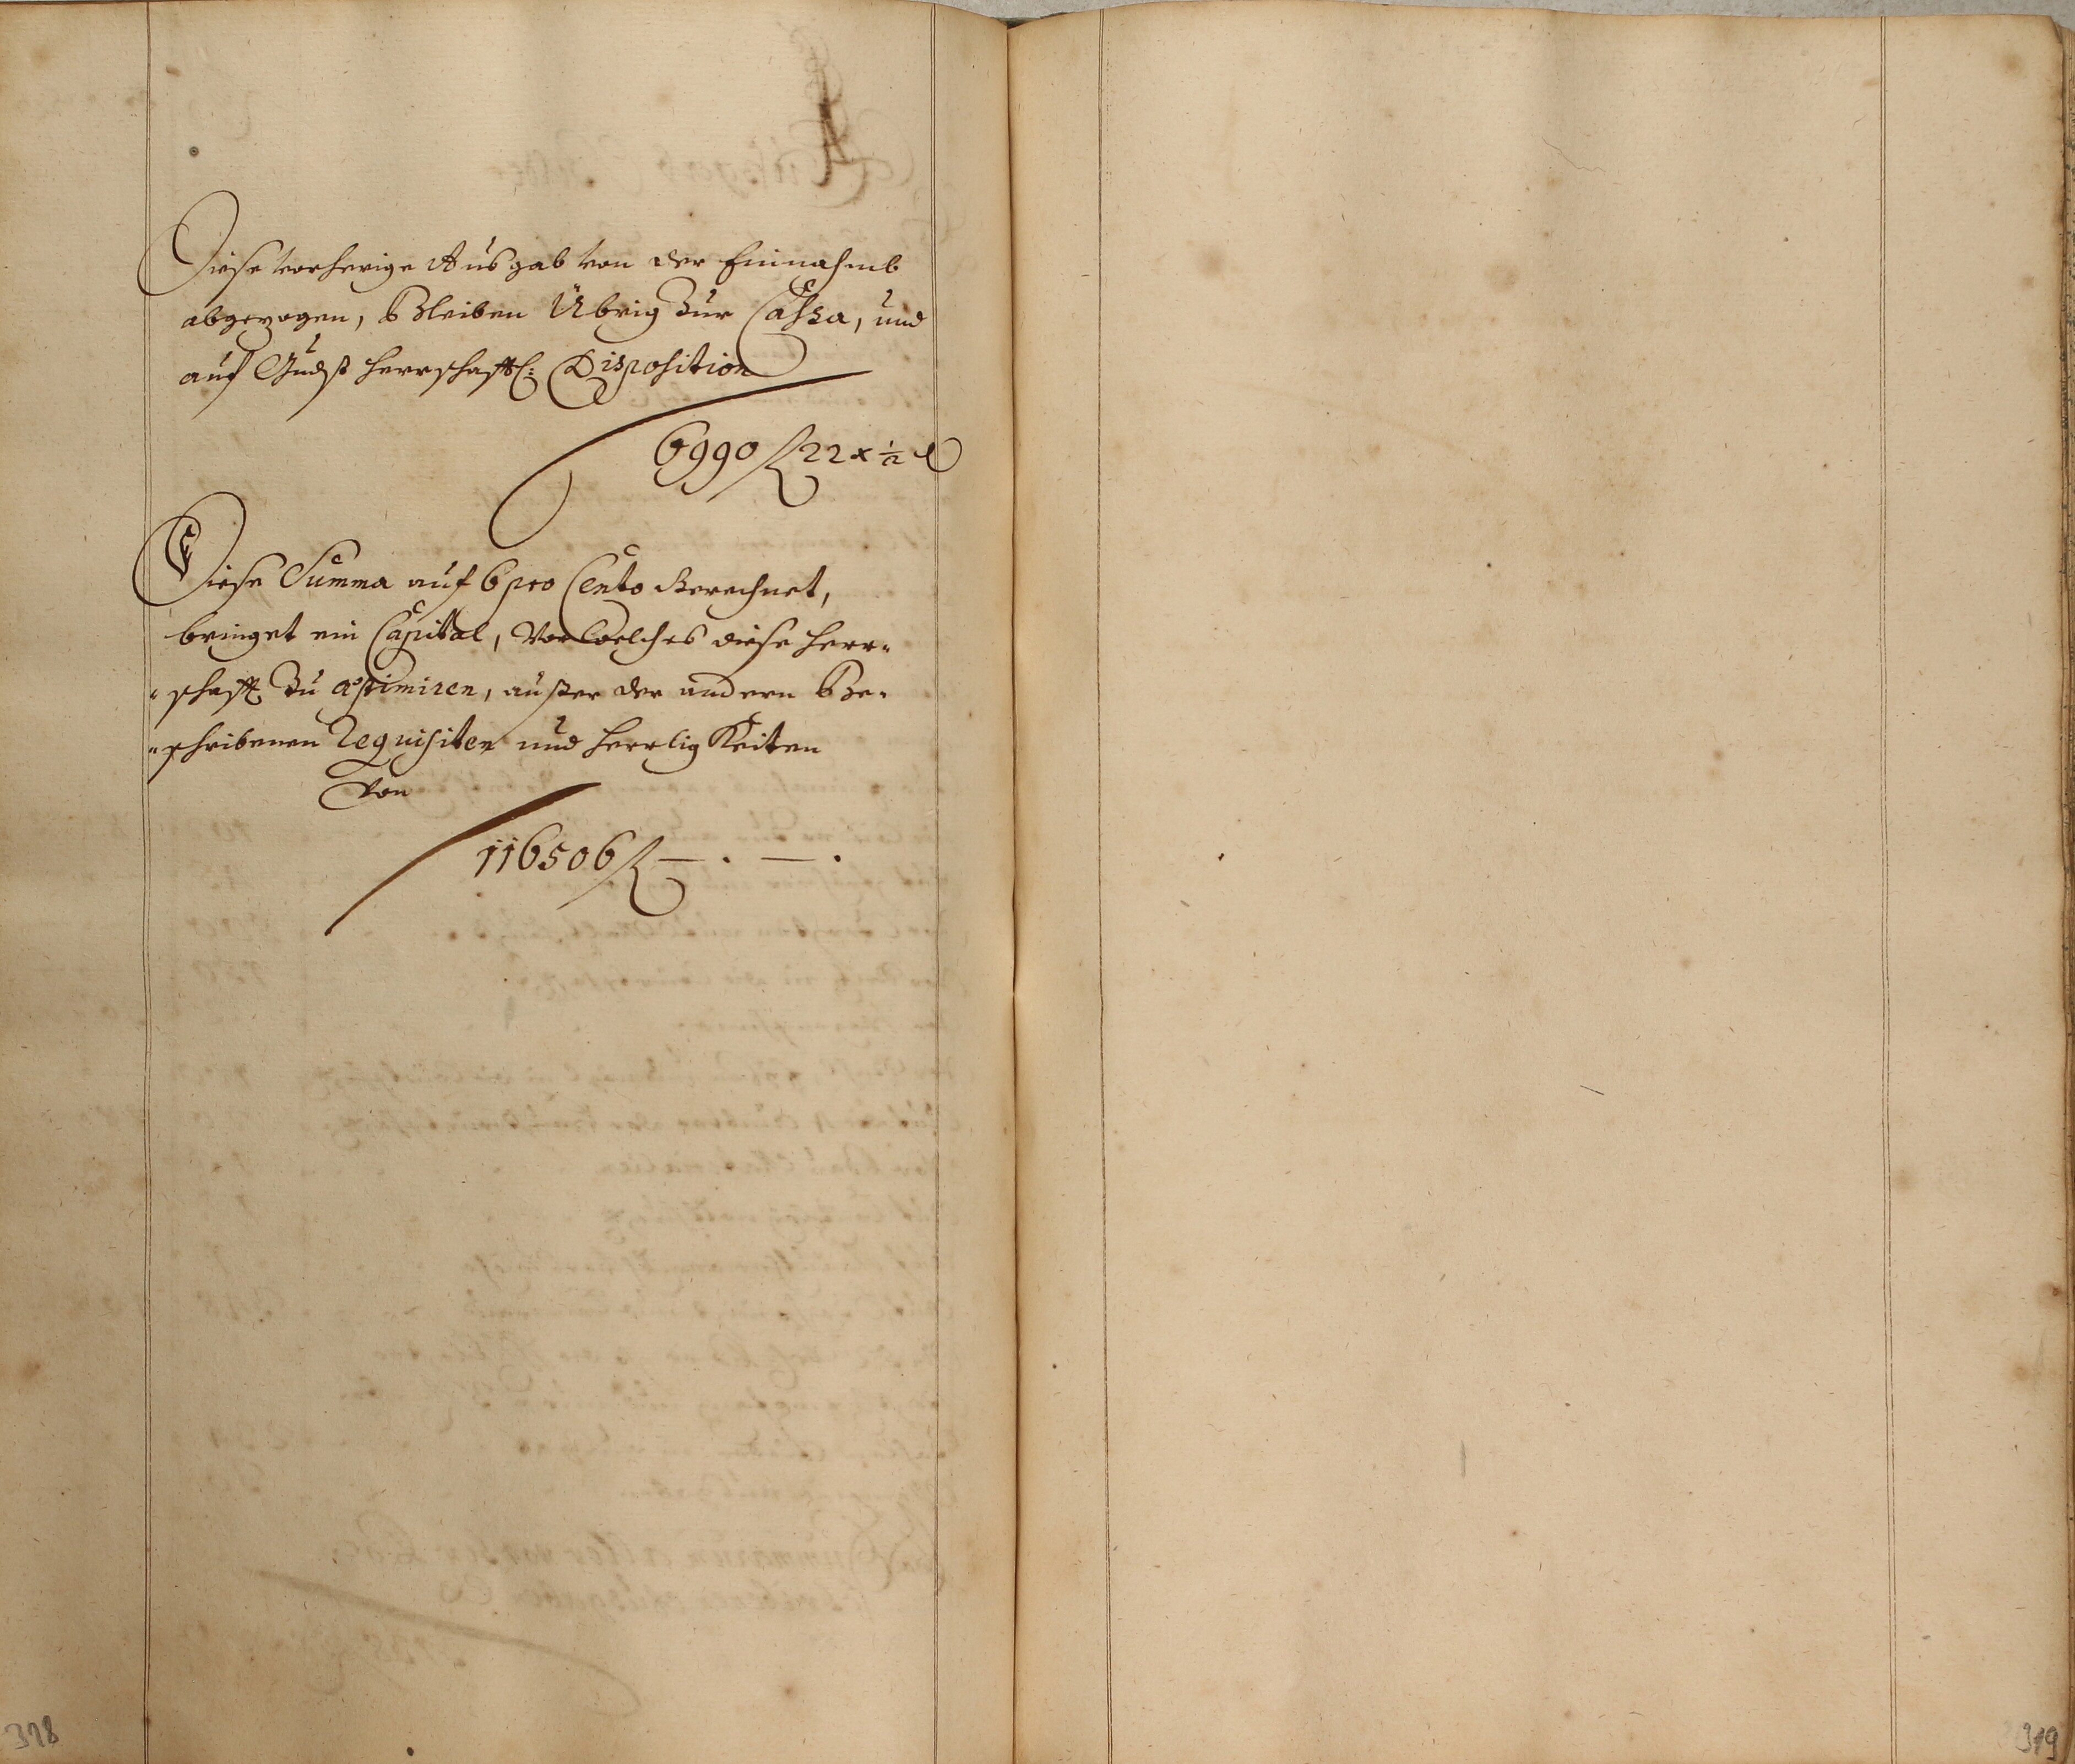 Diese vorherige Ausgab von der Einnahmb
abgezogen, Bleiben Übrig Zur Cassa, und
auf Gndst herrschafftl: Disposition
6990 f 22 x ½ d
Diese Summa auf 6 pro Cento Berechnet,
bringet ein Capital, Vor Welches diese Herr=
=schafft Zu æstimiren, ausser der andern Be=
=schribenen Requisiten und Herrligkeiten
Von
116506 f — . — .
318
319